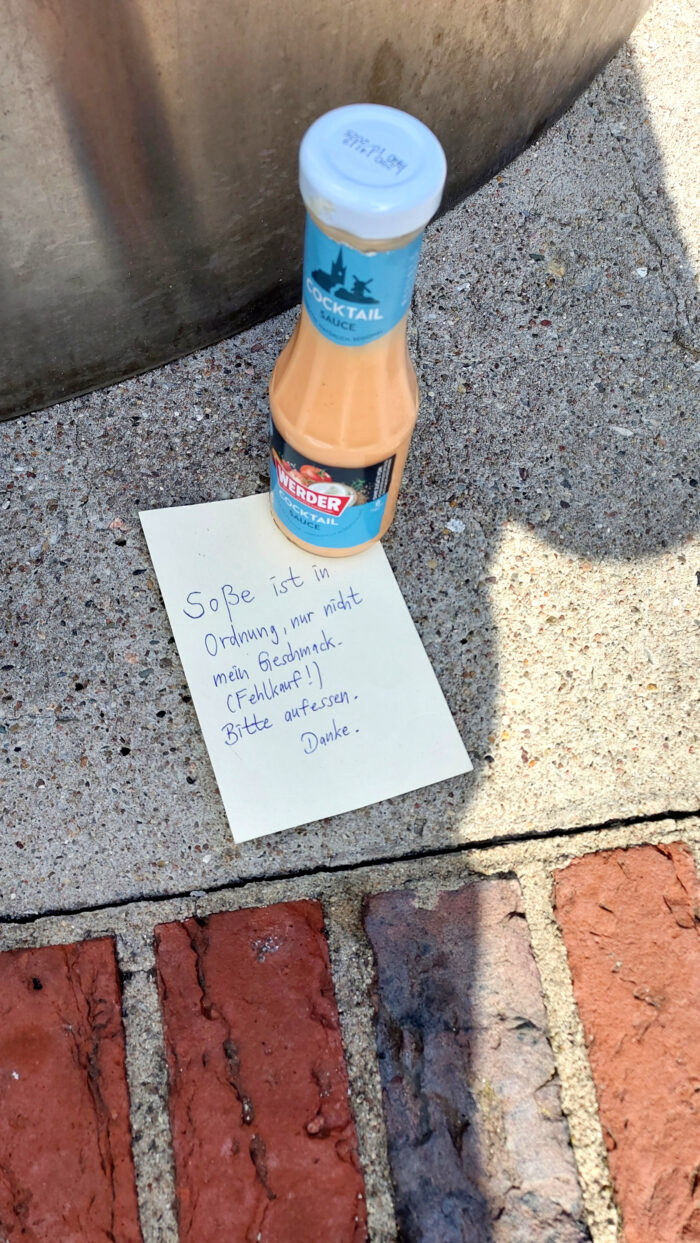 COCKTAIL
SAUCE
WERDER
COCKTAIL
SAUCE
Soße ist in
Ordnung, nur nicht
mein Geschmack.
(Fehlkauf!)
Bitte aufessen.
Danke.